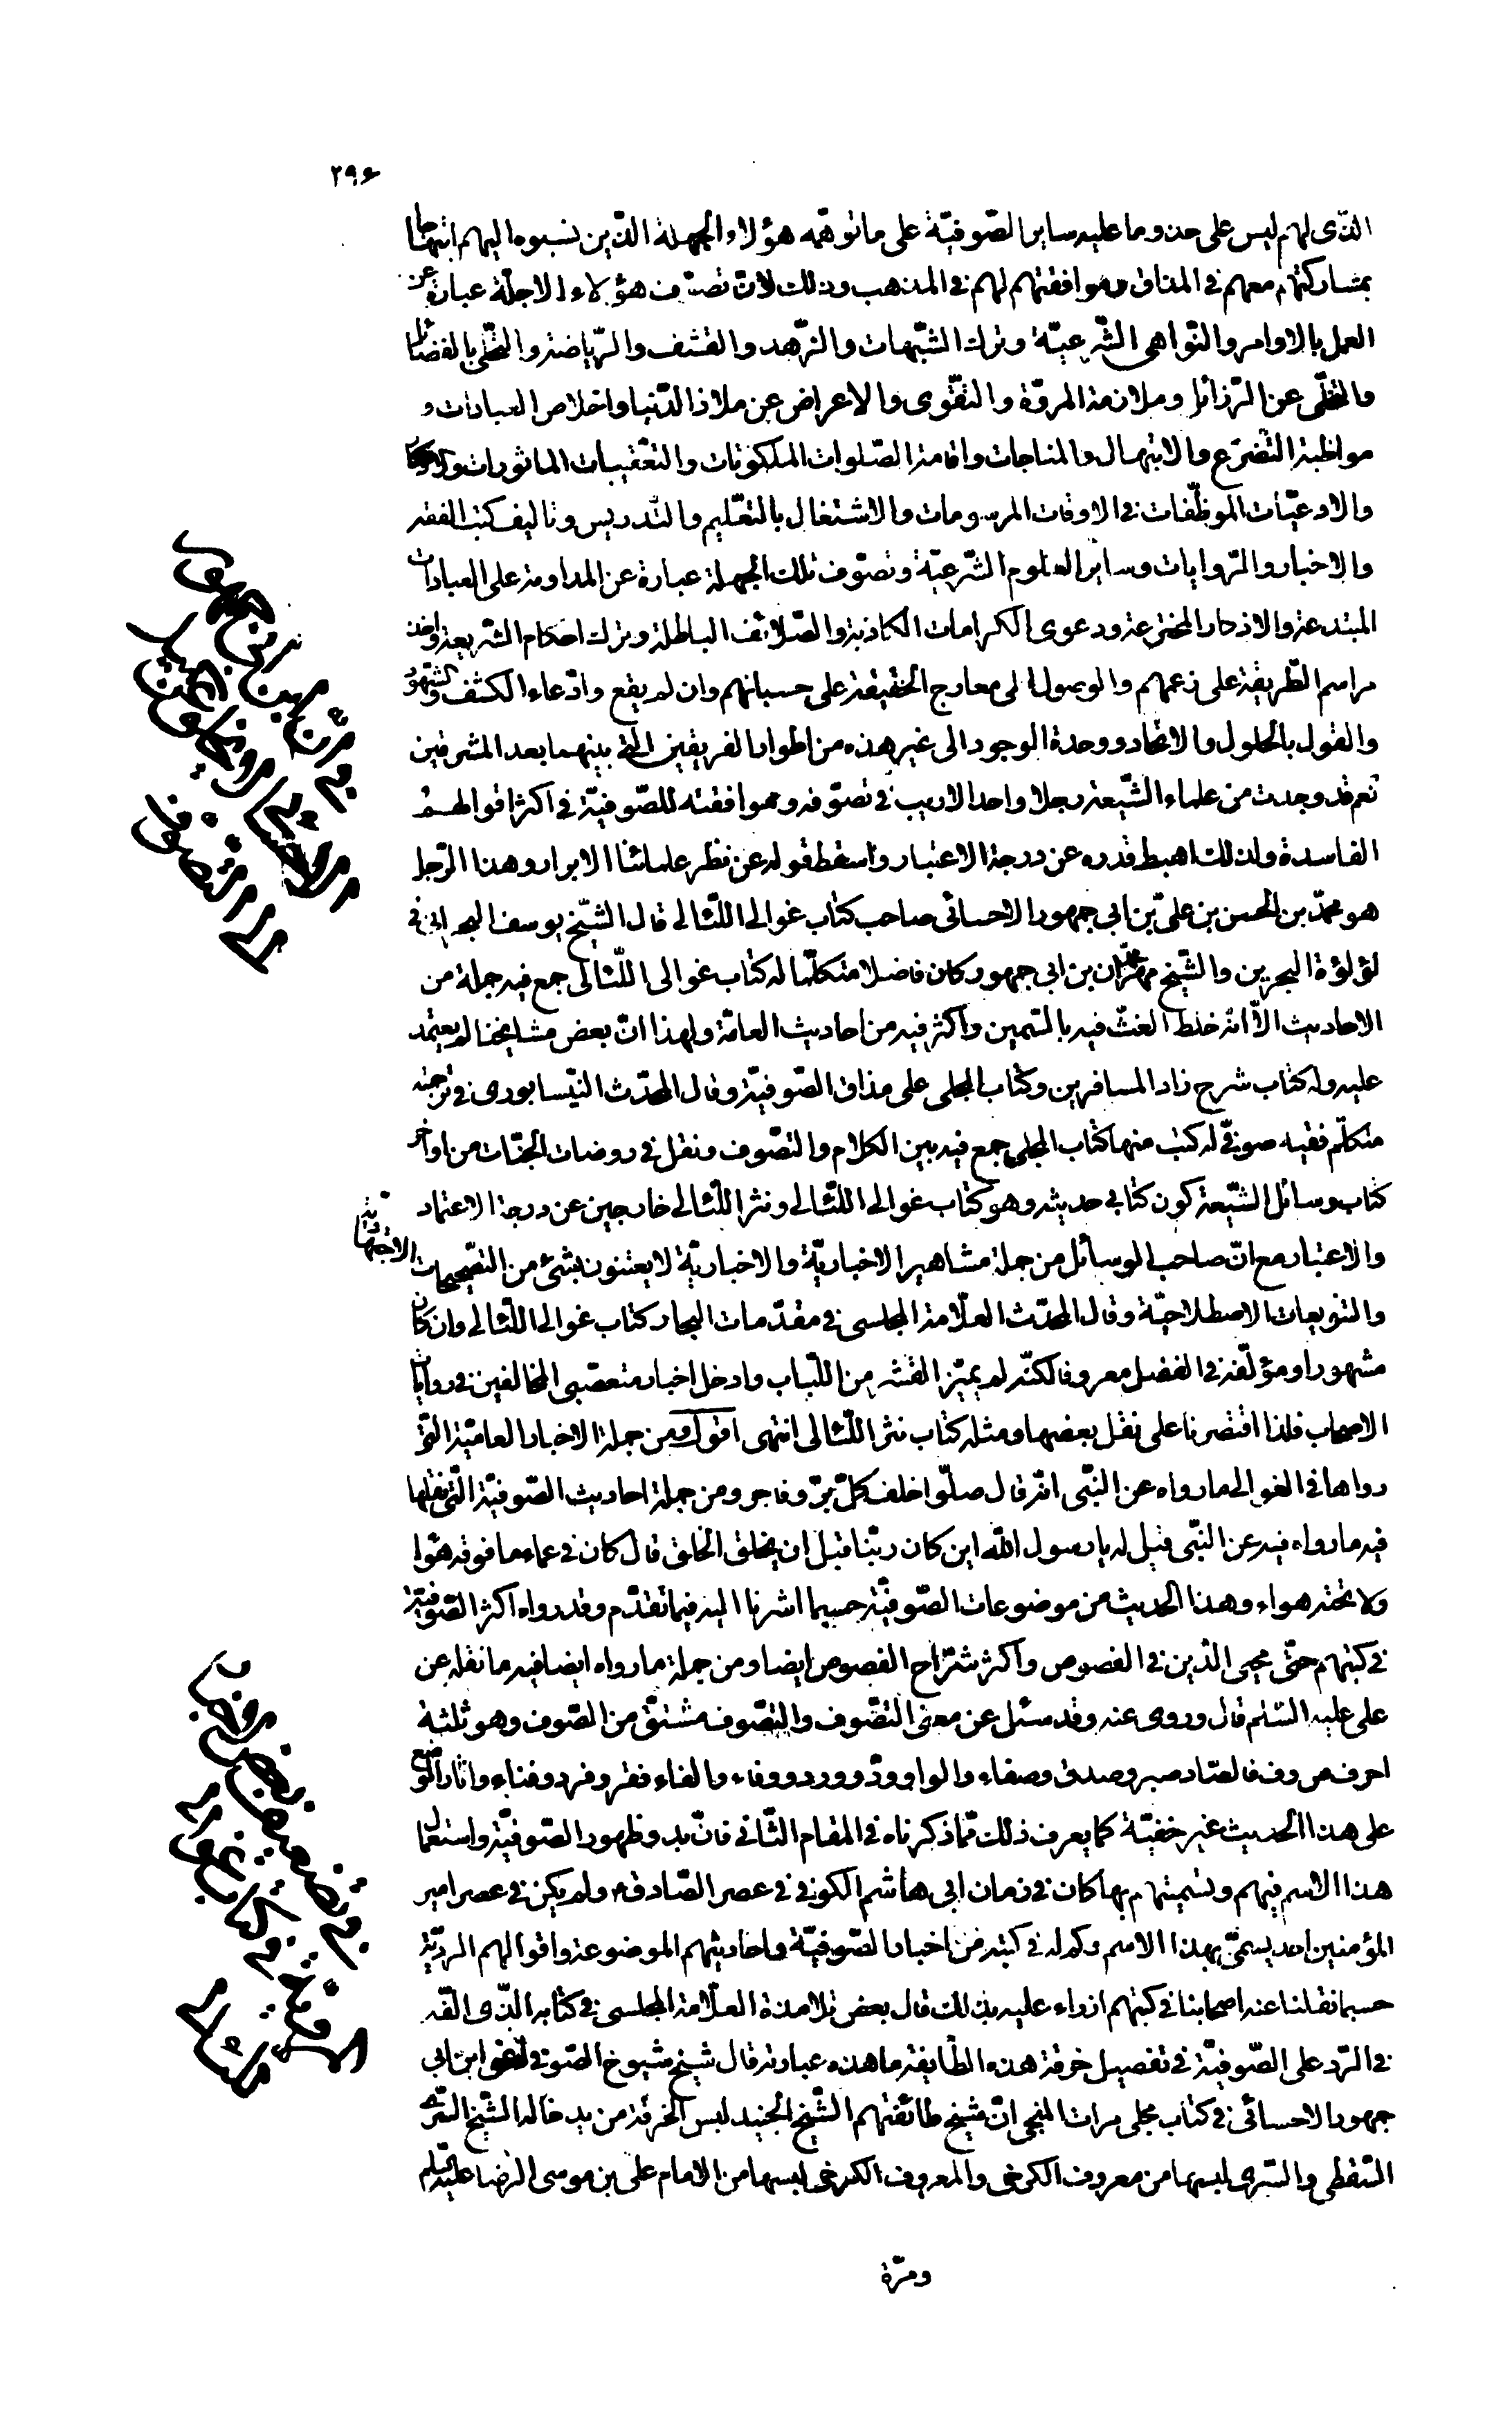 ٢٩۶
الذی لهم ليس علی حذو ما عليه ساير الصّوفيّة علی ما توهّمه هؤلاء الجهلة الذين نسبوه اليهم
بمشاركتهم معهم فی المذاق وموافقتهم لهم فی المذهب وذلك لانّ تصوّف هؤلاء الاجلّة عبارة عن
العمل بالاوامر والنّواهی الشّرعيّة وترك الشّبهات والزّهد والقشف والرّياضة والتحلّی بالفضائل
والتخلّی عن الرّذائل وملازمة المروّة والتقوی والاعراض عن ملاذ الدّنيا واخلاص العبادات و
مواظبة التّضرّع والابتهال والمناجات واقامة الصّلوات الملكوتات والتعقيبات الماثورات
والادعيّات الموظّفات فی الاوقات المرسومات والاشتغال بالتعليم والتّدريس وتاليف كتب الفقه
والاخبار والرّوايات وسائر العلوم الشّرعيّة وتصوّف تلك الجهلة عبارة عن المداومة علی العبادات
المبتدعة والاذكار المخترعة ودعوی الكرامات الكاذبة والباطلة وترك احكام الشّريعة واخذ
مراسم الطّريقة علی زعمهم والوصول الی معارج الحقيقة علی حسبانهم وان لم يقع وادّعاء الكشف والشّهود
والقول بالحلول والاتّحاد ووحدة الوجود الی غير هذه من اطوار الفريقين الّتی بينهما بعد المشرقين
نعم قد وجدت من علماء الشّيعة رجلا واحدا لا ريب فی تصوّفه وموافقته للصّوفيّة فی اكثر اقوالهم
الفاسدة ولذلك اهبط قدره عن درجة الاعتبار واسقط قوله عن نظر علمائنا الابرار وهذا الرّجل
هو محمّد بن الحسن بن علیّ بن ابی جمهور الاحسائی صاحب كتاب غوالی اللّئالی قال الشّيخ يوسف البحرانی فی
لؤلؤة البحرين والشّيخ بن ابی جمهور كان فاضلا متكلّما له كتاب غوالی اللّئالی جمع فيه جملة من
الاحاديث الاّ انّه خلط الغثّ فيه بالسّمين واكثر فيه من احاديث العامّة ولهذا انّ بعض مشايخنا لم يعتمد
عليه وله كتاب شرح زاد المسافرين وكتاب المجلی علی مذاق الصّوفيّة وقال المحدّث النيّسابوری فی ترجمته
متكلّم فقيه صوفیّ له كتب منها كتاب المجلی جمع فيه بين الكلام والتصّوف ونقل فی روضات الجنّات من اواخر
كتاب وسائل الشّيعة كون كتابی حديثه وهو كتاب غوالی اللّئالی ونثر اللّئالی خارجين عن درجة الاعتماد
والاعتبار مع انّ صاحب الوسائل من جملة مشاهير الاخباريّة والاخباريّة لا يعتنون بشئ من التصّحيحات الاجتهاديّة
والتنويعات الاصطلاحيّة وقال المحدّث العلّامة المجلسی فی مقدّمات البحار كتاب غوالی اللّئالی وان كان
مشهورا ومؤلّفه فی الفضل معروفا لكنّه لم يميّز القشر من اللّباب وادخل اخبار متعصّبی المخالفين فی روايات
الاصحاب فلذا اقتصرنا علی نقل بعضها ومثله كتاب نثر اللّئالی انتهی اقول ومن جملة الاخبار العاميّة الّتی
رواها فی الغوالی ما رواه عن النبّی انّه قال صلّوا خلف كلّ برّ وفاجر ومن جملة احاديث الصّوفيّة الّتی نقلها
فيه ما رواه فيه عن النبّی قيل له يا رسول الله اين كان ربّنا قبل ان يخلق الخلق قال كان فی عماء ما فوقه هوا
ولا تحته هواء وهذا الحديث من موضوعات الصّوفيّة حسبما اشرنا اليه فيما تقدّم وقد رواه اكثر الصّوفيّة
فی كتبهم حتّی محيی الدّين فی الفصوص واكثر شرّاح الفصوص ايضا ومن جملة ما رواه ايضا فيه ما نقله عن
علی عليه السّلم قال وروی عنه وقد سئل عن معنی التصّوف والتصّوف مشتقّ من الصّوف وهو ثلثة
احرف ص و ف فالصّاد صبر وصدق وصفاء والواو ودّ وورد ووفاء والفاء فقر وفرد وفناء واثار الوضع
علی هذا الحديث غير خفيّة كما يعرف ذلك ممّا ذكرناه فی المقام الثّانی فانّ بدو ظهور الصّوفيّة واستعمال
هذا الاسم فيهم وتسميتهم بها كان فی زمان ابی هاشم الكوفی فی عصر الصّادق ولم يكن فی عصر امير
المؤمنين احد يسمّی بهذا الاسم وكم له فی كتبه من اخبار الصّوفيّة واحاديثهم الموضوعة واقوالهم الرديّة
حسبما نقلنا عنه اصحابنا فی كتبهم ازراء عليه بذلك قال بعض تلامذة العلّامة المجلسی فی كتابه الّذی الّفه
فی الرّد علی الصّوفيّة فی تفصيل خرقة هذه الطّايفة ما هذه عبارته قال شيخ مشيوخ الصّوفی ابن ابی
جمهور الاحسائی فی كتاب مجلی مرات المنجی انّ شيخ طائفتهم الشّيخ الجنيد لبس الخرقة من يد خاله الشّيخ السّری
السّقطی والسّری لبسها من معروف الكرخی والمعروف الكرخی لبسها من الامام علی بن موسی الرّضا عليه السّلم
ومرّة